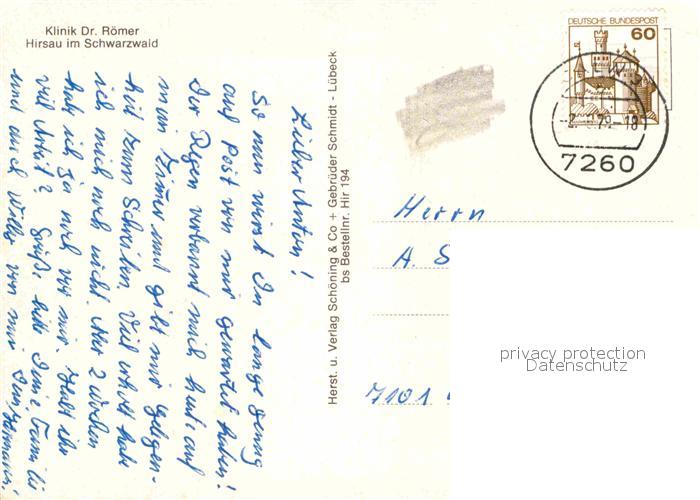 Klinik Dr. Römer
Hirsau im Schwarzwald
Lieber Anton!
So nun wirst Du lange genug
auf Post von mir gewartet haben!
Der Regen verbannt mich heute auf
mein Zimmer und gibt mir Gelegen-
heit zum Schreiben. Viel erholt habe
ich mich noch nicht. Aber 2 Wochen
hab ich ja noch vor mir. Habt ihr
viel Arbeit? Grüße bitte Deine Familie
und auch Willi von mir Dein Hermann!
Herst. u. Verlag Schöning & Co + Gebrüder Schmidt - Lübeck
bs Bestellnr. Hir 194
DEUTSCHE BUNDESPOST
60
79-18
7260
Herrn
A. S
7101
privacy protection
Datenschutz